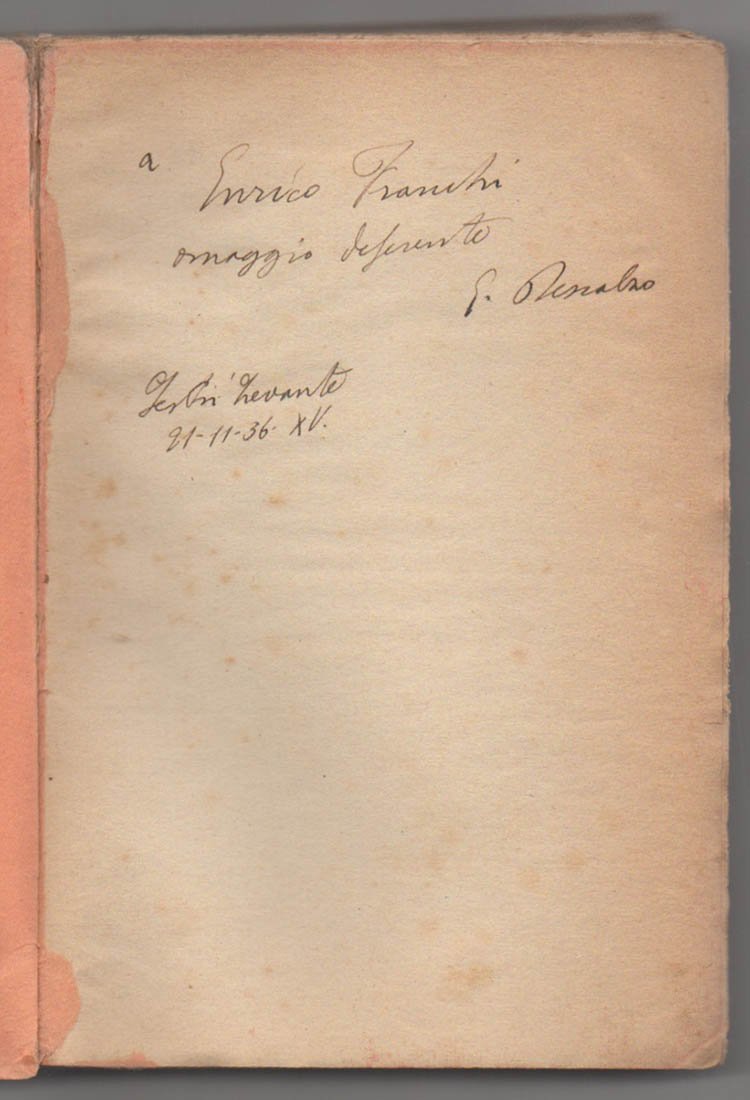 a Enrico Franchi
omaggio deferente
G. Descalzo
Sestri Levante
21-11-36 XV.